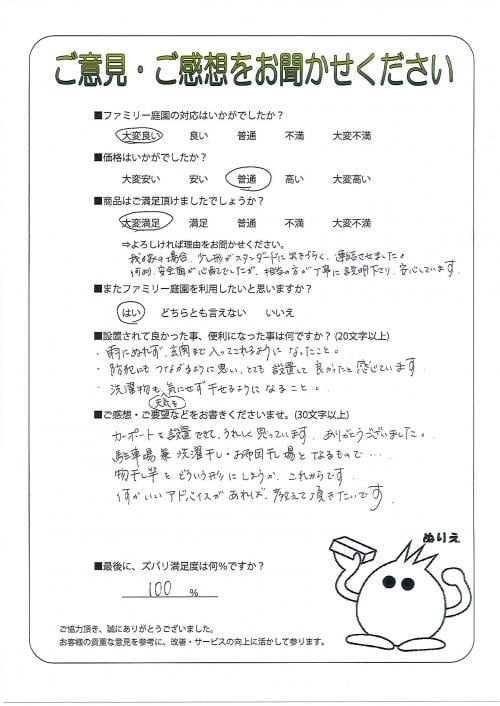 ご意見・ご感想をお聞かせください
■ファミリー庭園の対応はいかがでしたか？
大変良い　良い　普通　不満　大変不満
■価格はいかがでしたか？
大変安い　安い　普通　高い　大変高い
■商品はご満足頂けましたでしょうか？
大変満足　満足　普通　不満　大変不満
⇒よろしければ理由をお聞かせください。
我が家の場合、少し形がスタンダードに出きづらく、連結させました。
何回、安全面が心配でしたが、担当の方が丁寧に説明下さり、安心しています。
■またファミリー庭園を利用したいと思いますか？
はい　どちらとも言えない　いいえ
■設置されて良かった事、便利になった事は何ですか？(20文字以上)
・雨にぬれず、玄関まで入ってこれるようになったこと。
・防犯にもつながるように思い、とても設置して良かったと感じています。
・洗濯物も、天気を気にせず干せるようになること。
■ご感想・ご要望などをお書きくださいませ。(30文字以上)
カーポートを設置できて、うれしく思っています。ありがとうございました。
駐車場兼洗濯干し・お布団干し場となるもので…、
物干し竿をどういう形にしようか、これからです。
何かいいアドバイスがあれば、教えて頂きたいです。
ぬりえ
■最後に、ズバリ満足度は何％ですか？
100 ％
ご協力頂き、誠にありがとうございました。
お客様の貴重な意見を参考に、改善・サービスの向上に活かして参ります。